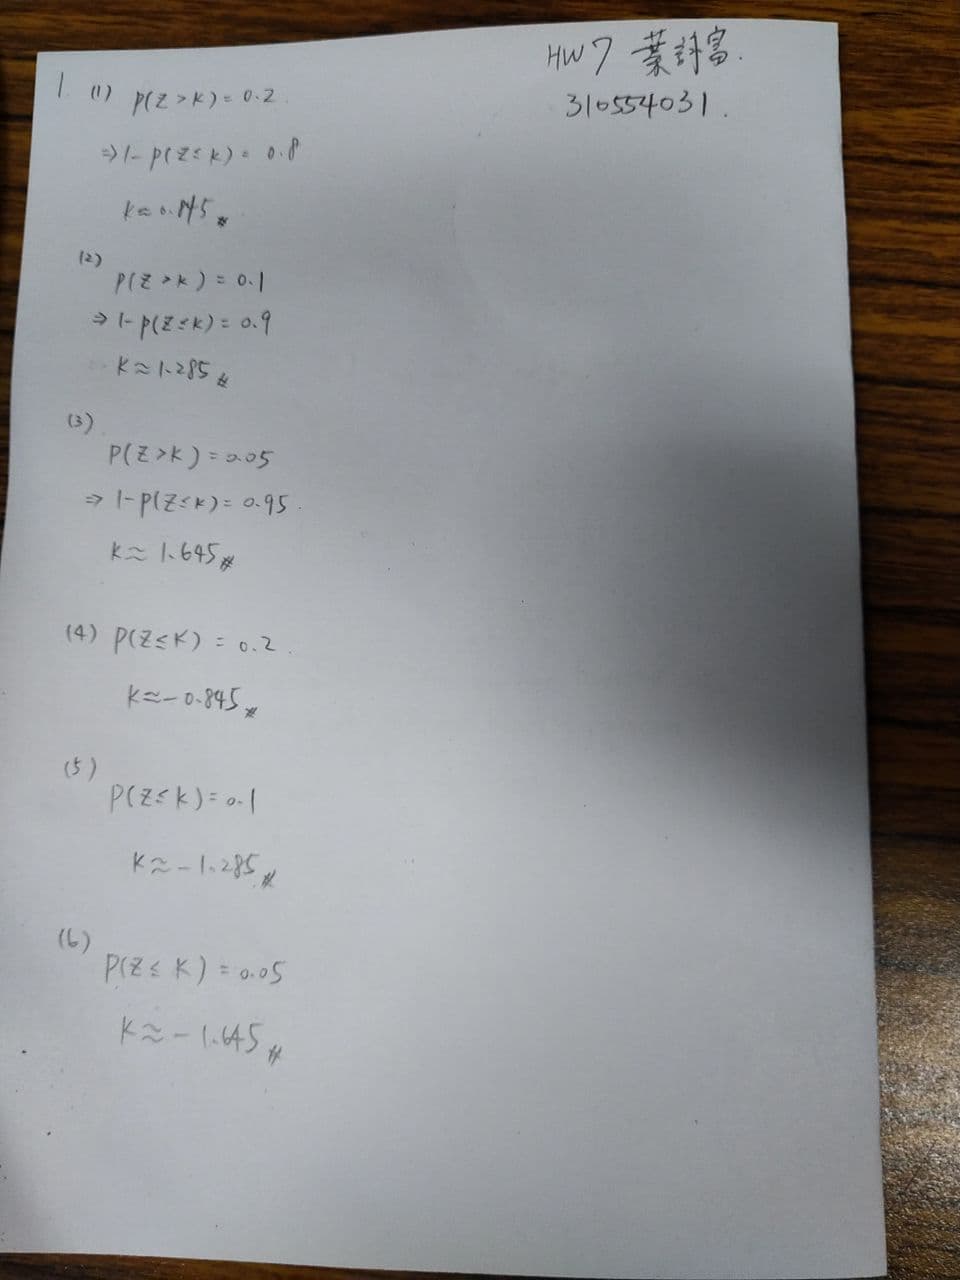 HW 7 葉詩富.
310554031.
1. (1) P(Z>K)=0.2.
⇒1-P(Z≤K)=0.8
K≈0.845#
(2)
P(Z>K)=0.1
⇒1-P(Z≤K)=0.9
K≈1.285#
(3)
P(Z>K)=0.05
⇒1-P(Z≤K)=0.95.
K≈1.645#
(4) P(Z≤K)=0.2.
K≈-0.845#
(5)
P(Z≤K)=0.1
K≈-1.285#
(6)
P(Z≤K)=0.05
K≈-1.645#